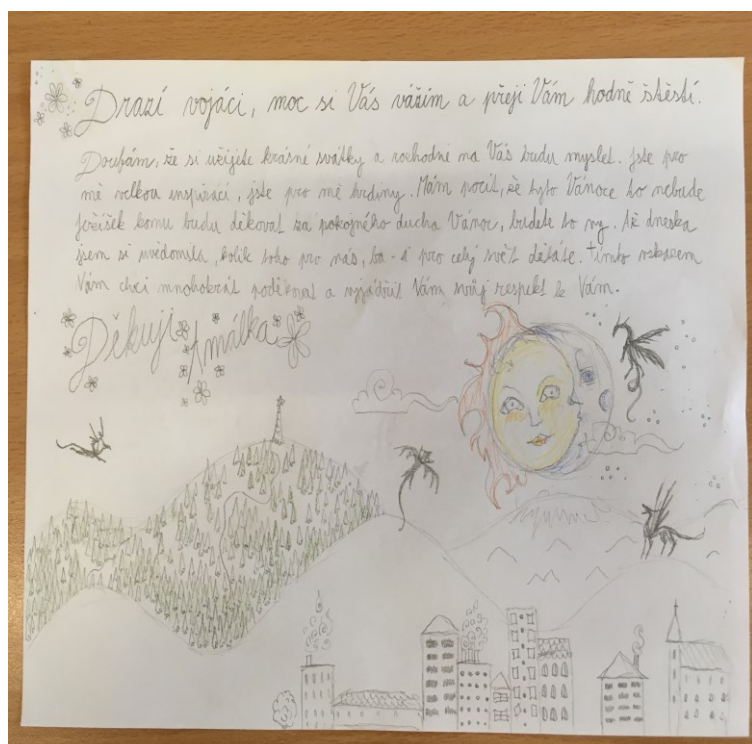 Drazí vojáci, moc si Vás vážím a přeji Vám hodně štěstí.
Doufám, že si užijete krásné svátky a rozhodně na Vás budu myslet. Jste pro
mě velkou inspirací, jste pro mě hrdiny. Mám pocit, že tyto Vánoce to nebude
Ježíšek komu budu děkovat za pokojného ducha Vánoc, budete to vy. Až dneska
jsem si uvědomila, kolik toho pro nás, ba - i pro celý svět děláte. Tímto vzkazem
Vám chci mnohokrát poděkovat a vyjádřit Vám svůj respekt k Vám.
Děkuji Amálka